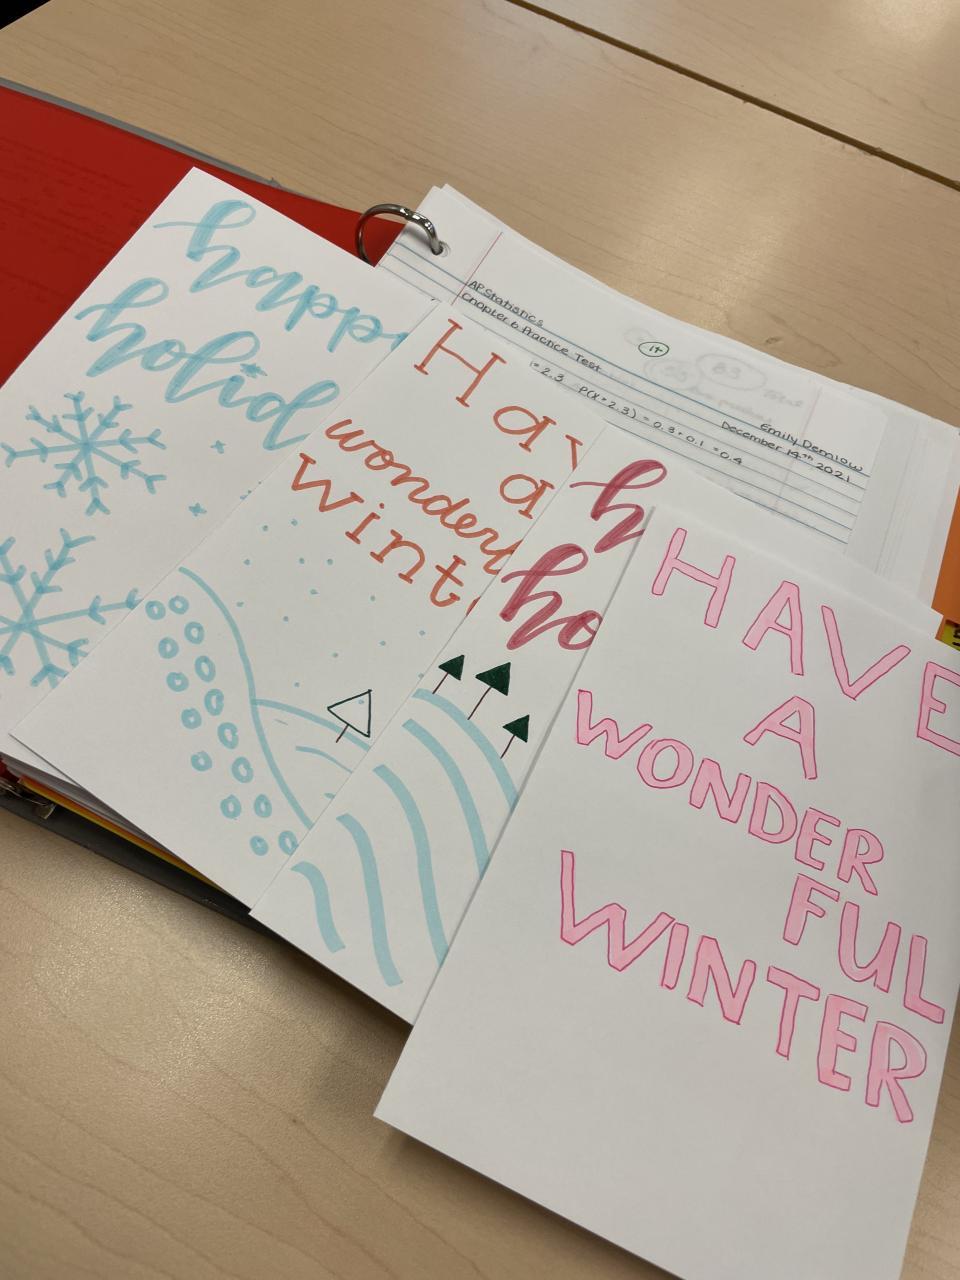 happy
holid
Hav
a
wonderf
Winte
h
ho
HAVE
A
WONDER
FUL
WINTER
AP Statistics
Chapter 6 Practice Test
Emily Demlow
December 14th 2021
1+
= 2.3 P(X=2.3) = 0.3+0.1 = 0.4